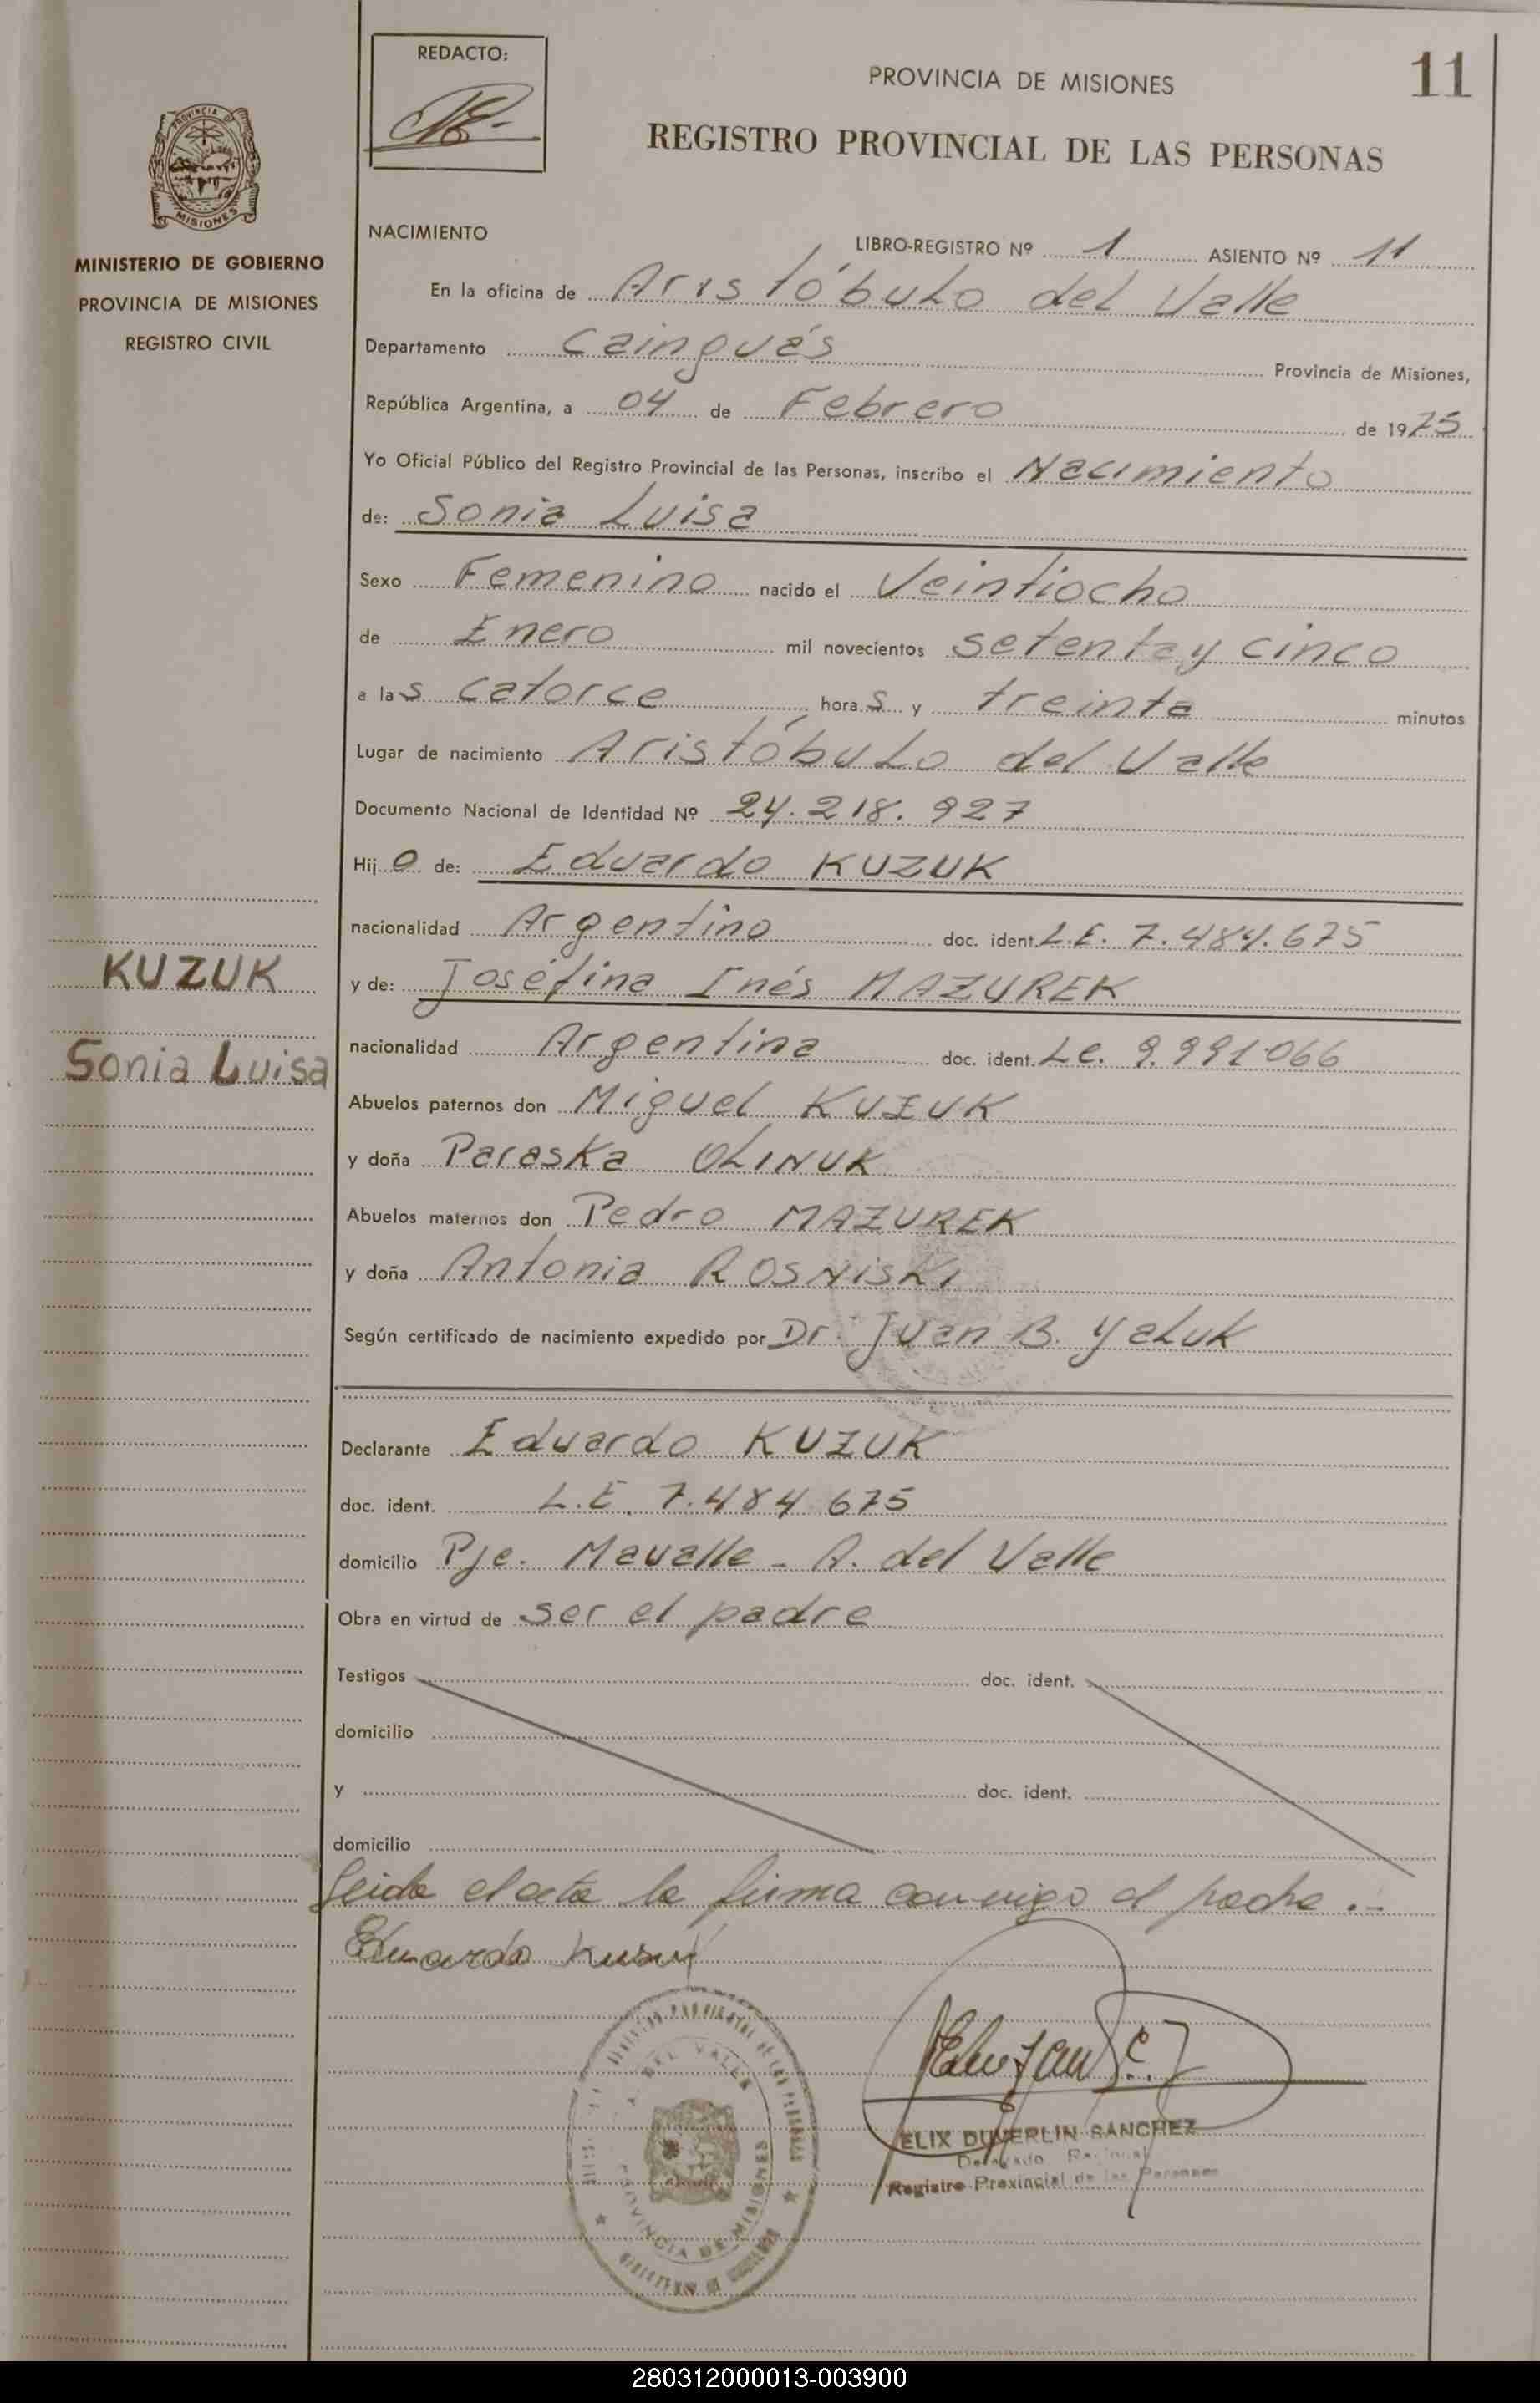 REDACTO:
PROVINCIA DE MISIONES
11
REGISTRO PROVINCIAL DE LAS PERSONAS
PROVINCIA DE
MISIONES
MINISTERIO DE GOBIERNO
PROVINCIA DE MISIONES
REGISTRO CIVIL
NACIMIENTO
LIBRO-REGISTRO Nº 1 ASIENTO Nº 11
En la oficina de Aristóbulo del Valle
Departamento Cainguás Provincia de Misiones,
República Argentina, a 04 de Febrero de 1975
Yo Oficial Público del Registro Provincial de las Personas, inscribo el Nacimiento
de: Sonia Luisa
Sexo Femenino nacido el Veintiocho
de Enero mil novecientos setenta y cinco
a las catorce horas y treinta minutos
Lugar de nacimiento Aristóbulo del Valle
Documento Nacional de Identidad Nº 24.218.927
Hijo de: Eduardo KUZUK
nacionalidad Argentino doc. ident. L.E. 7.484.675
KUZUK
y de: Joséfina Inés MAZUREK
Sonia Luisa
nacionalidad Argentina doc. ident. L.C. 9.991.066
Abuelos paternos don Miguel KUZUK
y doña Paraska OLINUK
Abuelos maternos don Pedro MAZUREK
y doña Antonia ROSNISKI
Según certificado de nacimiento expedido por Dr. Juan B. Yaluk
Declarante Eduardo KUZUK
doc. ident. L.E. 7.484.675
domicilio Pje. Mavalle - A. del Valle
Obra en virtud de ser el padre
Testigos doc. ident.
domicilio
y doc. ident.
domicilio
Leida el acta la firma conmigo el padre.-
Eduardo Kusuk
A. DEL VALLE
PROVINCIA DE MISIONES
ELIX DUVERLIN SANCHEZ
Registro Provincial de las Personas
280312000013-003900